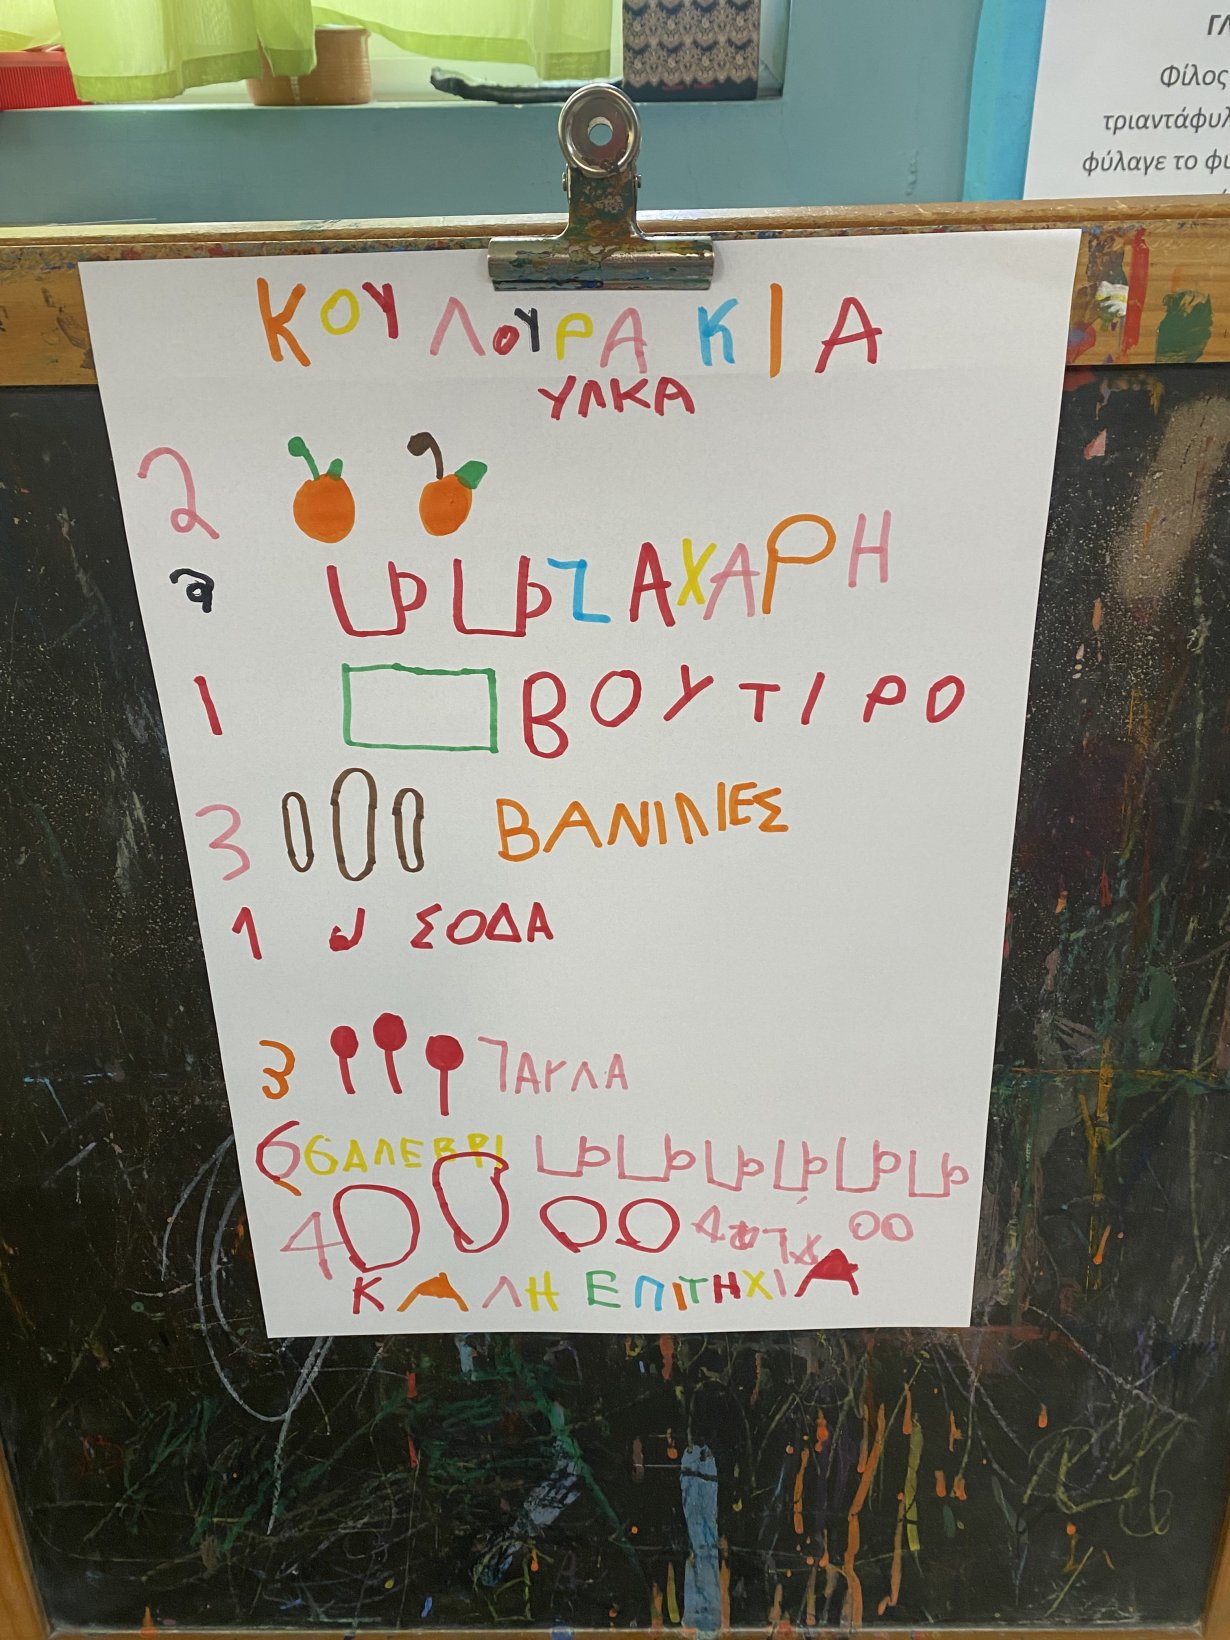 ΓΛ
Φίλος
τριαντάφυλ
φύλαγε το φυ
ΚΟΥΛΟΥΡΑΚΙΑ
ΥΛΚΑ
2
2 ΖΑΧΑΡΗ
1 ΒΟΥΤΙΡΟ
3 ΒΑΝΙΛΙΕΣ
1 ΣΟΔΑ
3
6 ΑΛΕΒΡΙ
4
ΚΑΛΗ ΕΠΙΤΗΧΙΑ